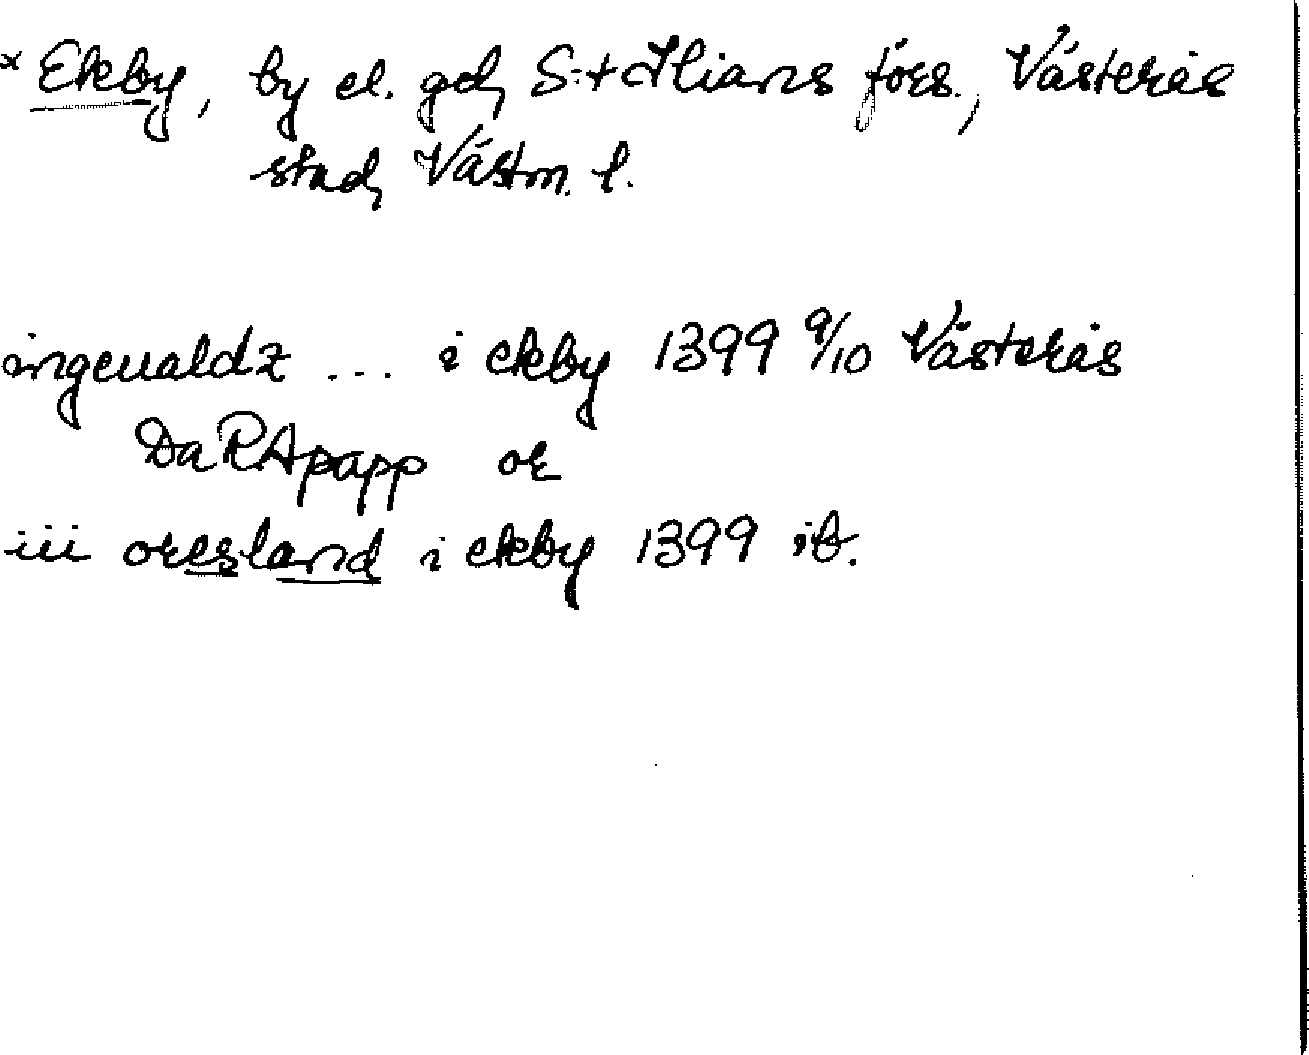 × Ekby, by el. gd, S:t Ilians förs., Västerås
stad, Västm. l.
ingeualdz ... i ekby 1399 9/10 Västerås
DaRApapp or
iii oresland i ekby 1399 ib.